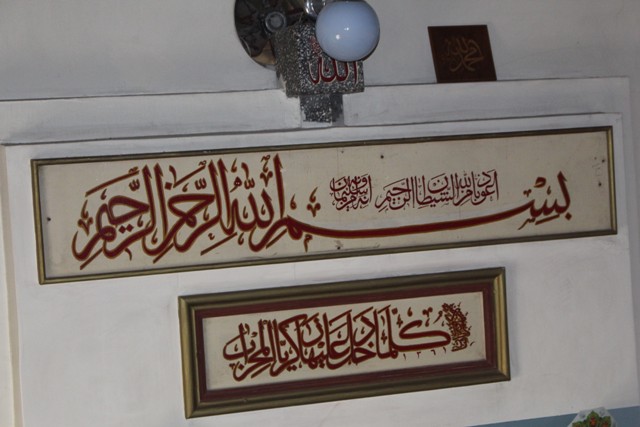 الله
محمد
أعوذ بالله من الشيطان الرجيم
بسم الله الرحمن الرحيم
كلما دخل عليها زكريا المحراب
١٣٦١